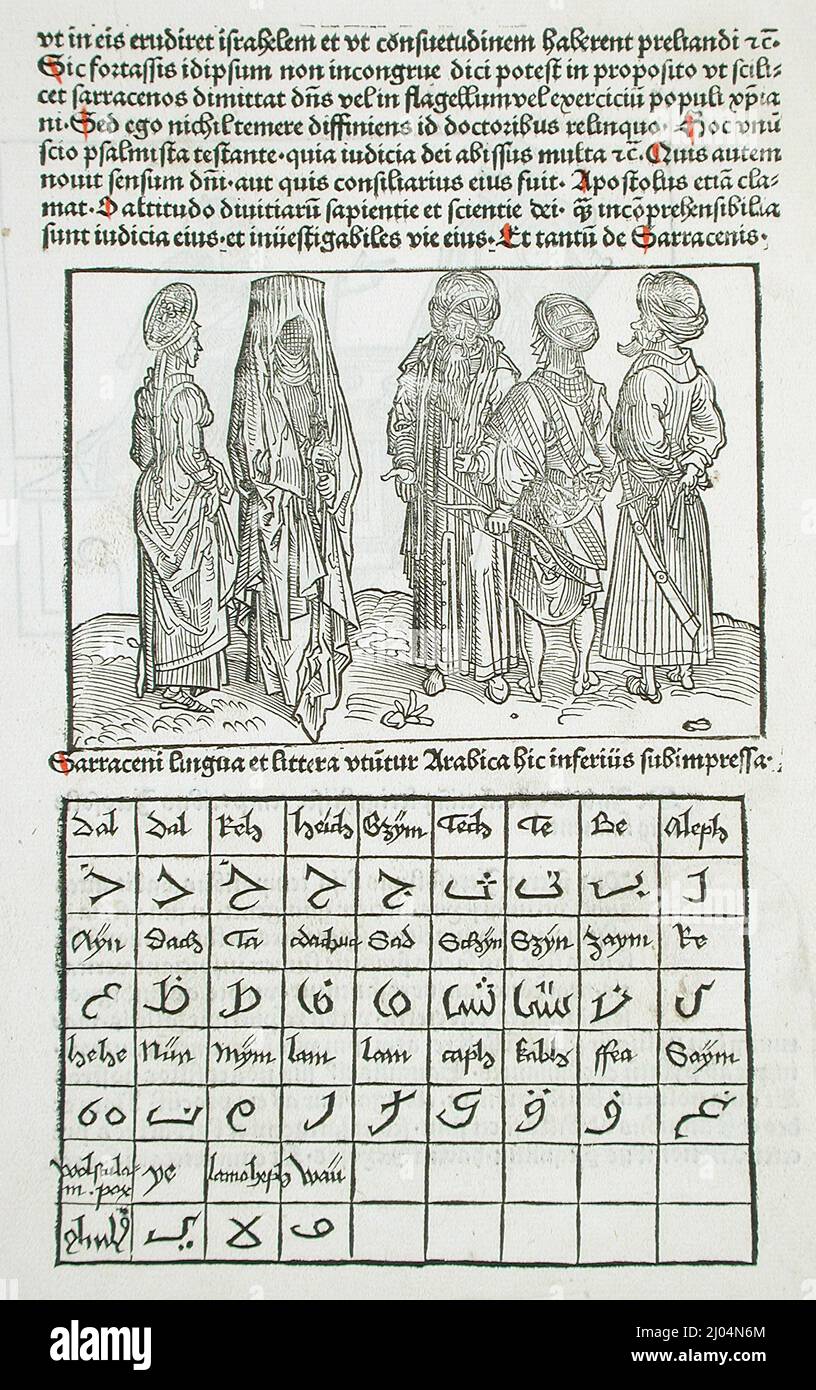 vt in eis erudiret israhelem et vt cōnsuetudinem haberent preliandi ⁊c̄·
Sic fortassis idipsum non incongrue dici potest in proposito vt scili-
cet sarracenos dimittat dn̄s vel in flagellum vel exerciciū populi xp̄ia
ni· Sed ego nichil temere diffiniens id doctoribus relinquo· Hoc vnū
scio psalmista testante· quia iudicia dei abissus multa ⁊c̄· Quis autem
nouit sensum dn̄i· aut quis consiliarius eius fuit· Apostolus etiā cla-
mat· O altitudo diuitiarū sapientie et scientie dei· q̄ incōprehensibilia
sunt iudicia eius· et inuestigabiles vie eius· Et tantū de Sarracenis·
Sarraceni lingua et littera vtūtur Arabica hic inferius subimpressa·
Dal Dal Keh heich Gzÿm Tech Te Be Aleph
ذ د خ ح ج ث ت ب ا
Aÿn Dach Ta Sad Schÿn Szÿn Zaym Re
ع ظ ط ض ص ش س ز ر
hehe Nün Mÿm lam lam caph kabh ffea Gaÿm
ye lamoleph wau
ي لا و
alamy
alamy
Image ID: 2J04N6M
www.alamy.com